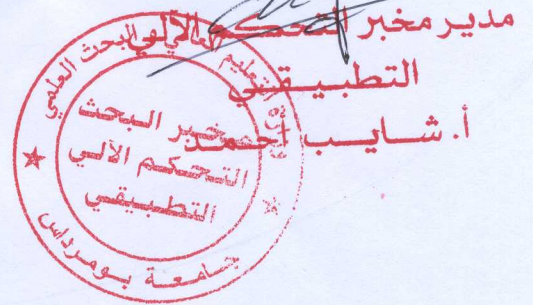 مدير مخبر التحكم الآلي
التطبيقي
أ. شايب أحمد
التعليم العالي والبحث العلمي
مخبر البحث
التحكم الآلي
التطبيقي
جامعة بومرداس